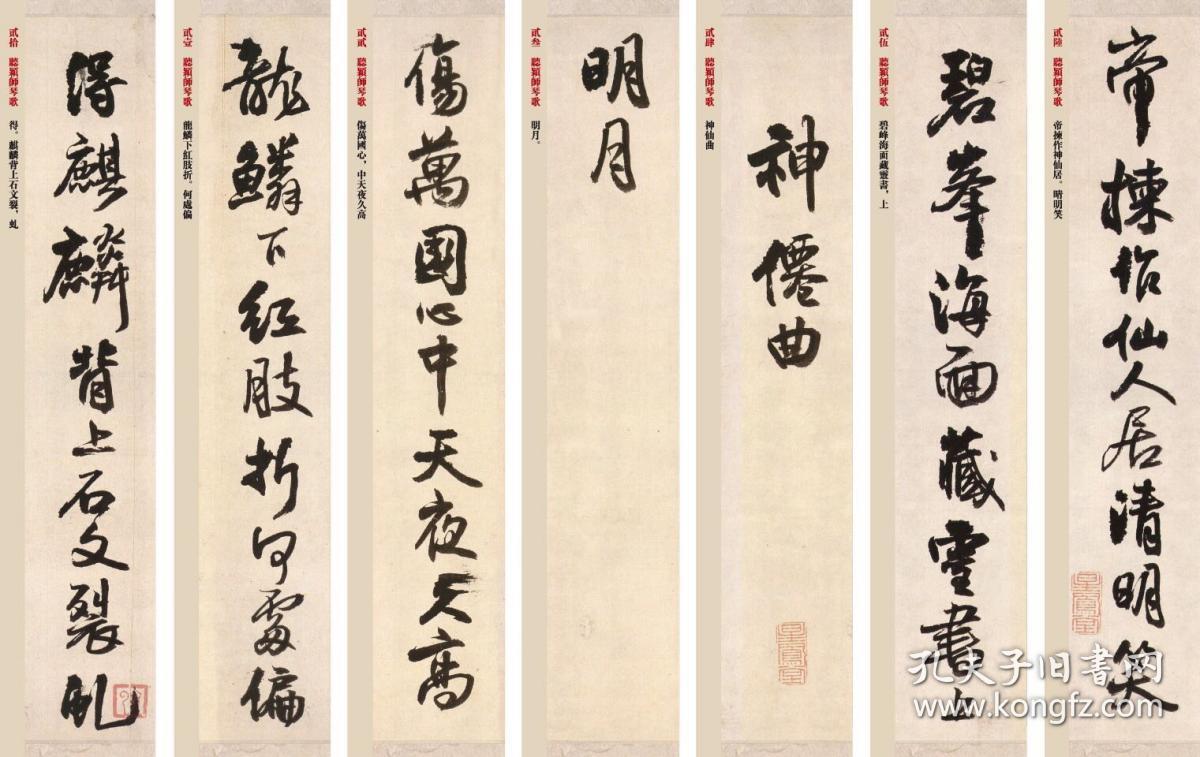 貳拾 聽穎師琴歌 得。麒麟背上石文裂,虬
得麒麟背上石文裂虬
貳壹 聽穎師琴歌 龍鱗下紅肢折。何處偏
龍鱗下紅肢折何處偏
貳貳 聽穎師琴歌 傷萬國心,中天夜久高
傷萬國心中天夜久高
貳叁 聽穎師琴歌 明月。
明月
貳肆 聽穎師琴歌 神仙曲
神僊曲
貳伍 聽穎師琴歌 碧峰海面藏靈書,上
碧峯海面藏靈書上
貳陸 聽穎師琴歌 帝揀作神仙居。晴明笑
帝揀作仙人居清明笑
孔夫子旧书网
www.kongfz.com